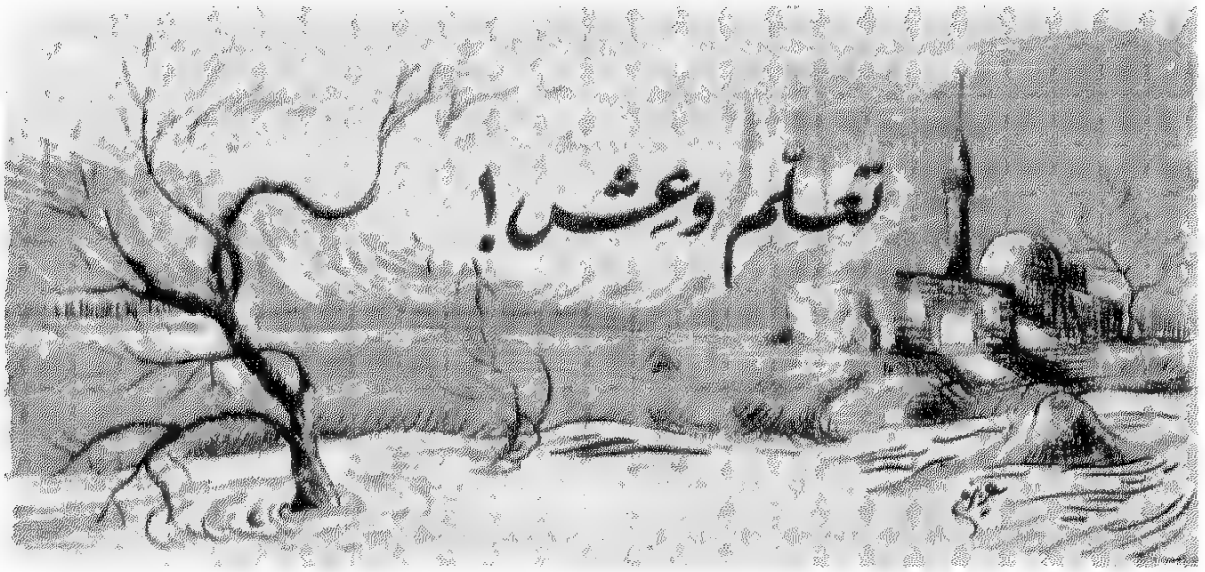 تعلّم وعِش!